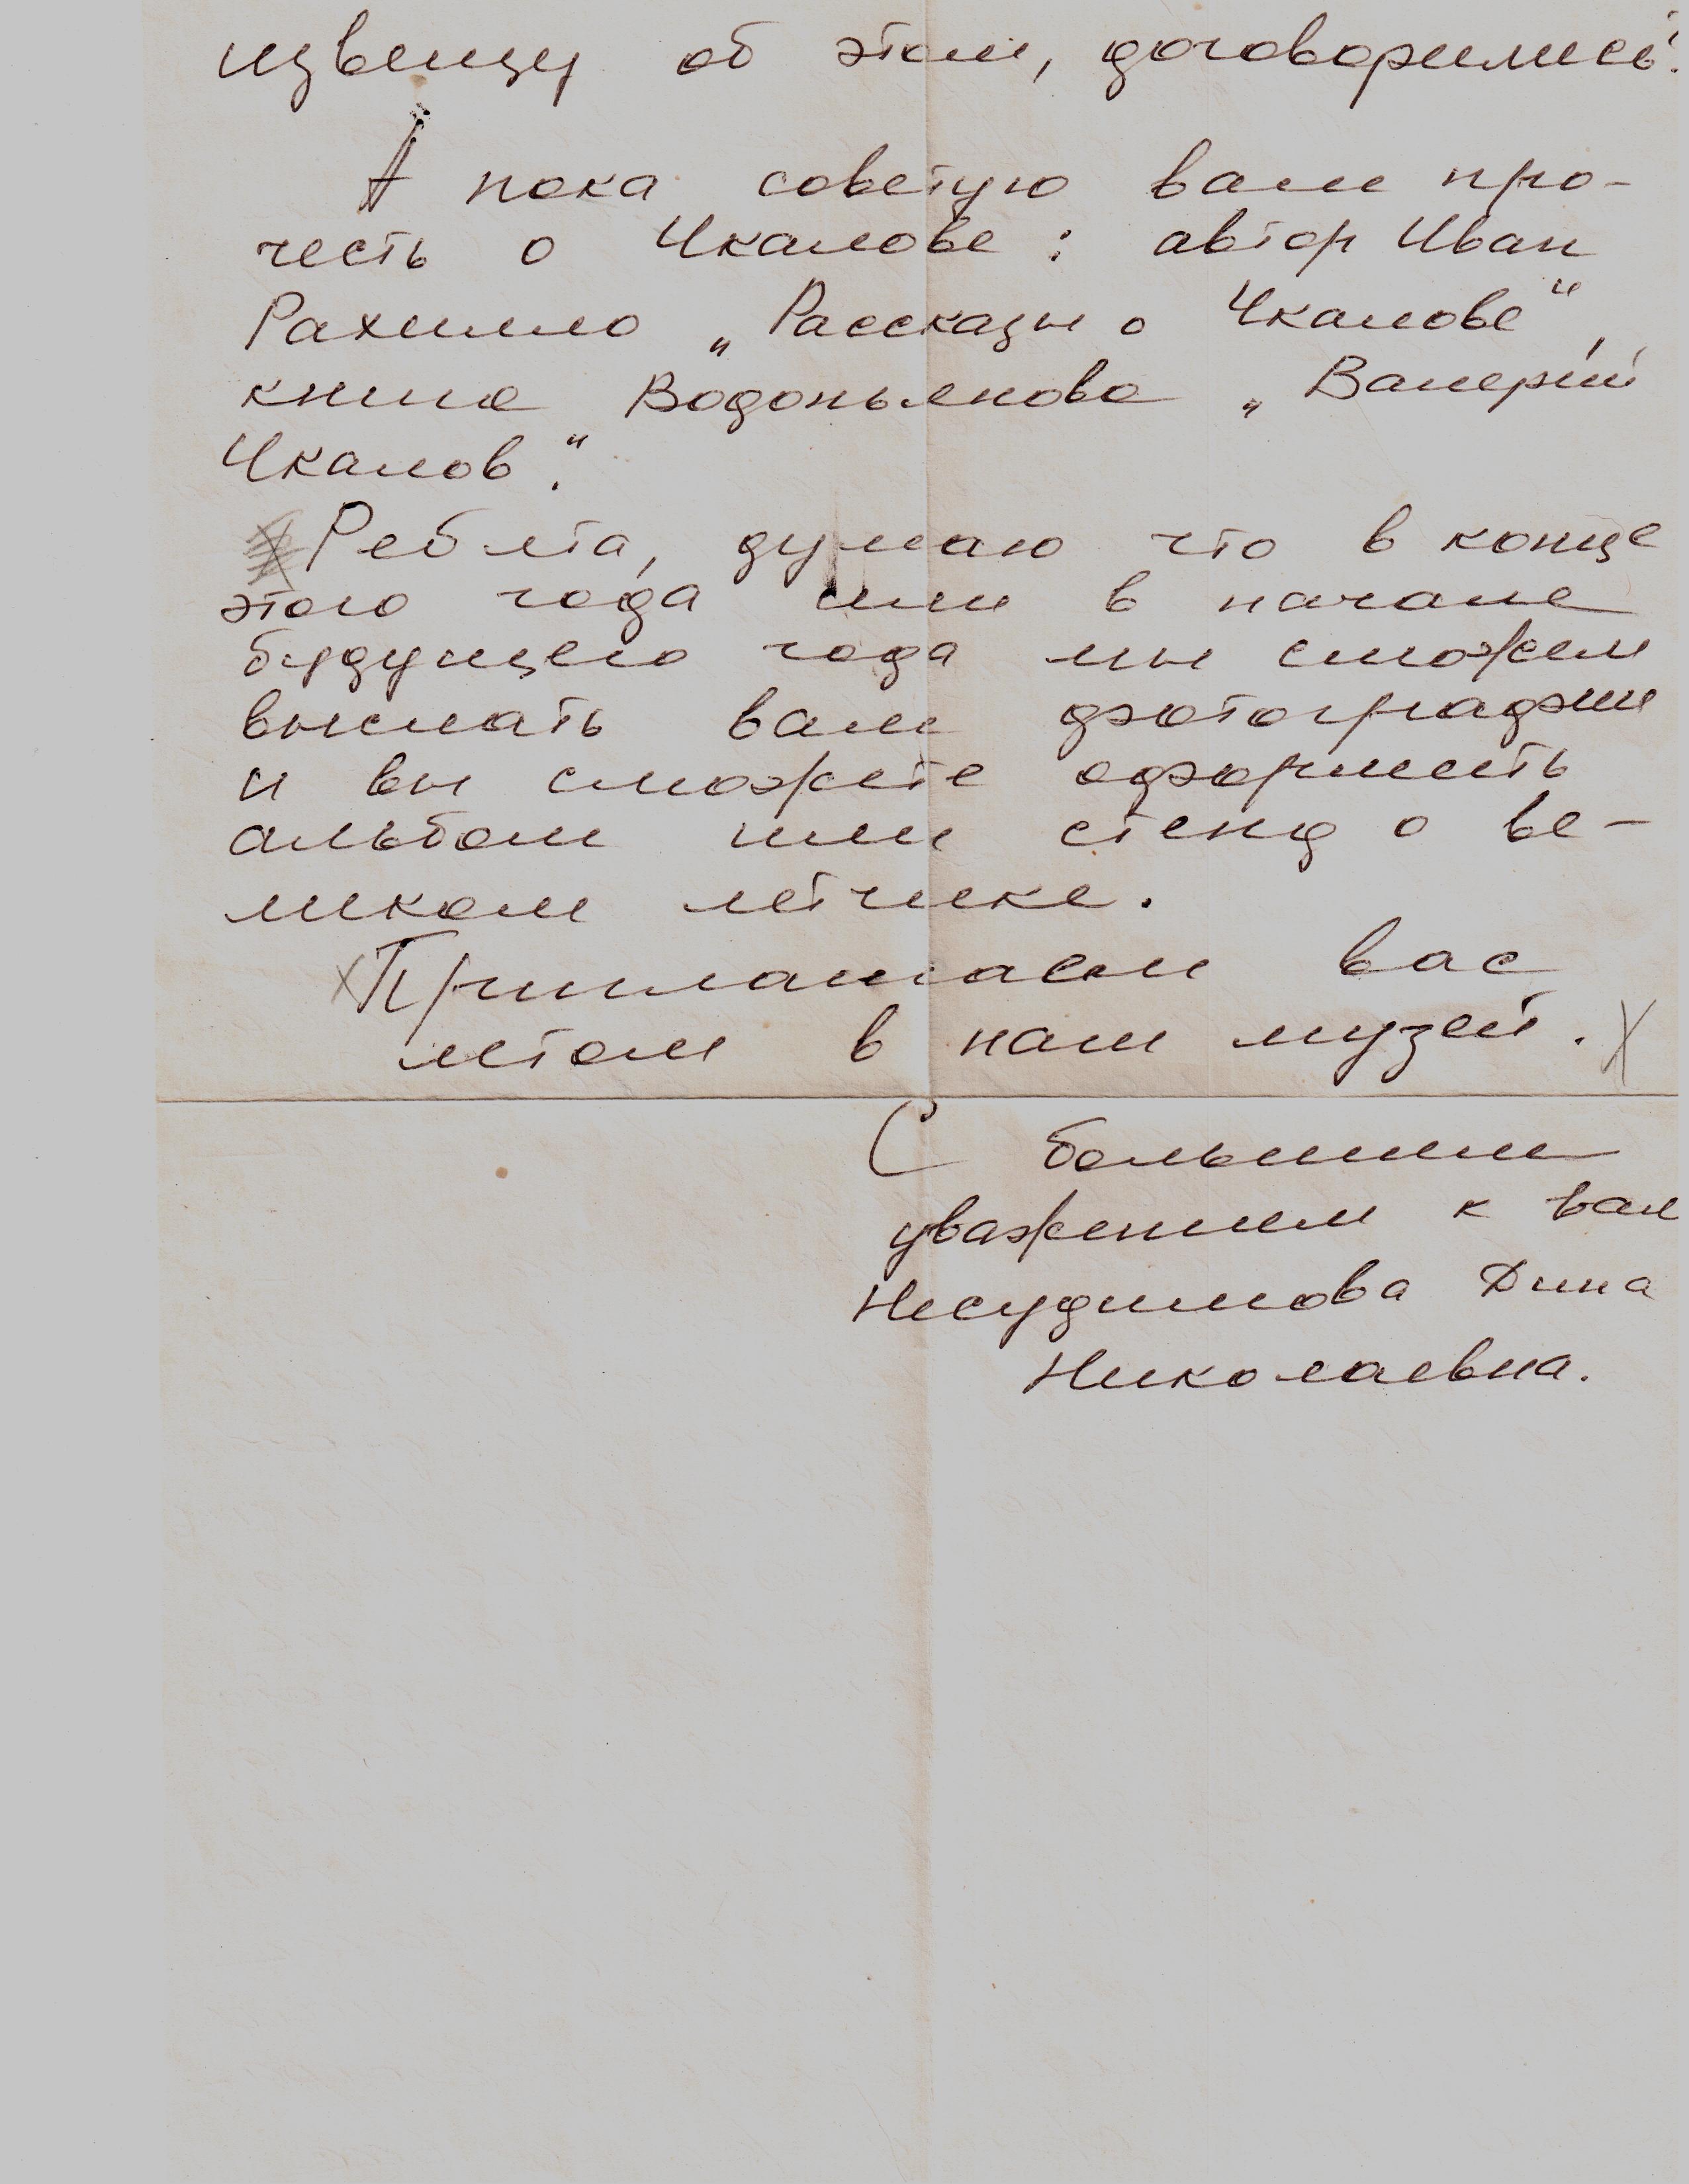 извещу об этом, договорились?
А пока советую вам про-
честь о Чкалове: автор Иван
Рахилло „Рассказы о Чкалове“,
книга Водопьянова „Валерий
Чкалов“.
Ребята, думаю что в конце
этого года или в начале
будущего года мы сможем
выслать вам фотографии
и вы сможете оформить
альбом или стенд о ве-
ликом лётчике.
Приглашаем вас
летом в наш музей.
С большим
уважением к вам
Несудимова Дина
Николаевна.